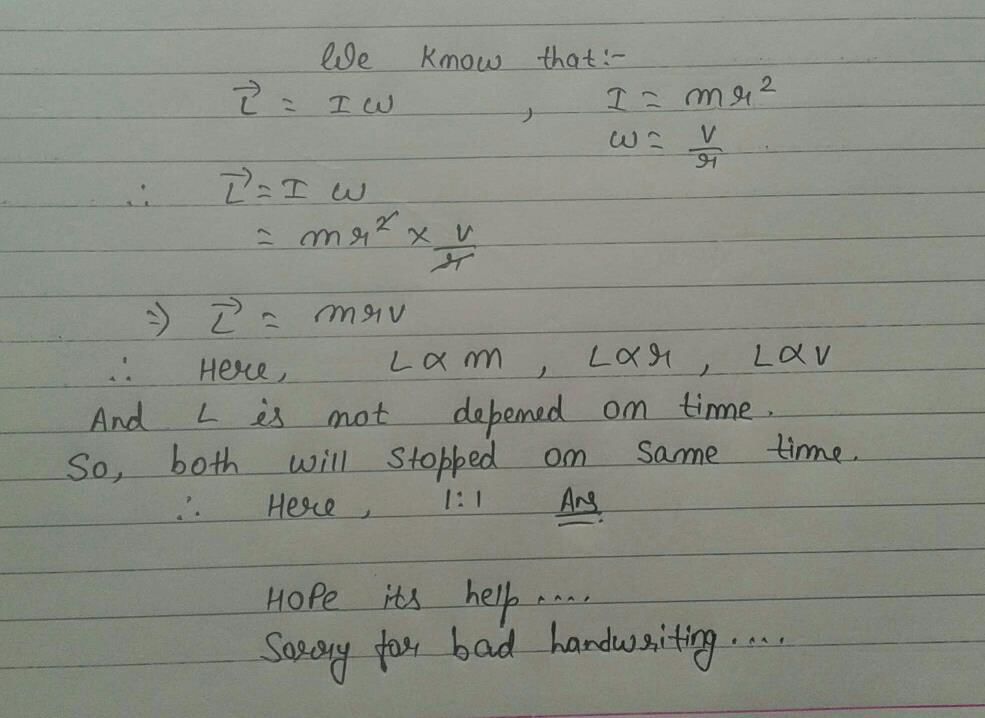 We Know that:-
L⃗ = I ω , I = mr²
ω = v/r
∴ L⃗ = I ω
= mr² × v/r
⇒ L⃗ = mrv
∴ Here, L ∝ m , L ∝ r , L ∝ v
And L is not depened on time.
So, both will stopped on same time.
∴ Here, 1:1 Ans.
HOPe its help ....
Sorry for bad handwriting ....